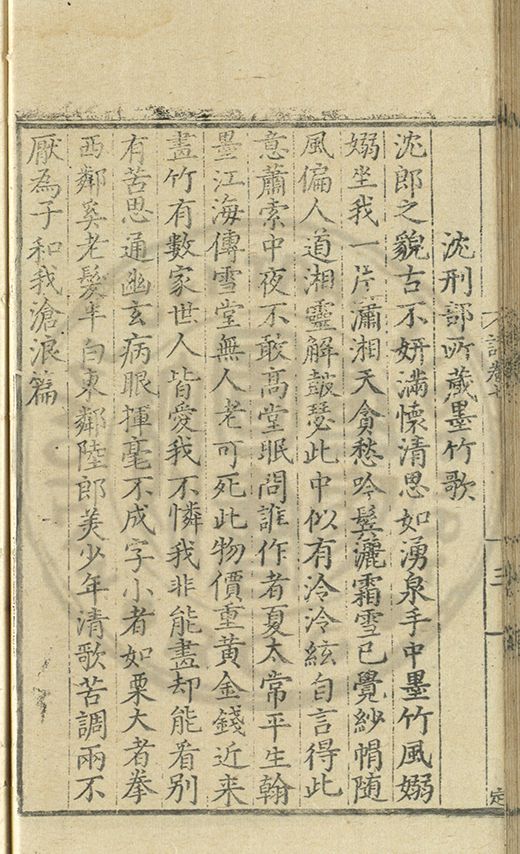 沈刑部所蔵墨竹歌
沈郎之貌古不妍滿懷清思如湧泉手中墨竹風嫋
嫋坐我一片瀟湘天貪愁吟髩灑霜雪已覺紗㡌随
風偏人道湘靈解鼓瑟此中似有泠泠絃自言得此
意蕭索中夜不敢髙堂眠問誰作者夏太常平生翰
墨江海傳雪堂無人老可死此物價重黄金錢近来
畫竹有數家世人皆愛我不憐我非能畫却能看别
有苦思通幽玄病眼揮毫不成字小者如粟大者拳
西鄰奚老髪半白東鄰陸郎美少年清歌苦調兩不
厭為子和我滄浪篇